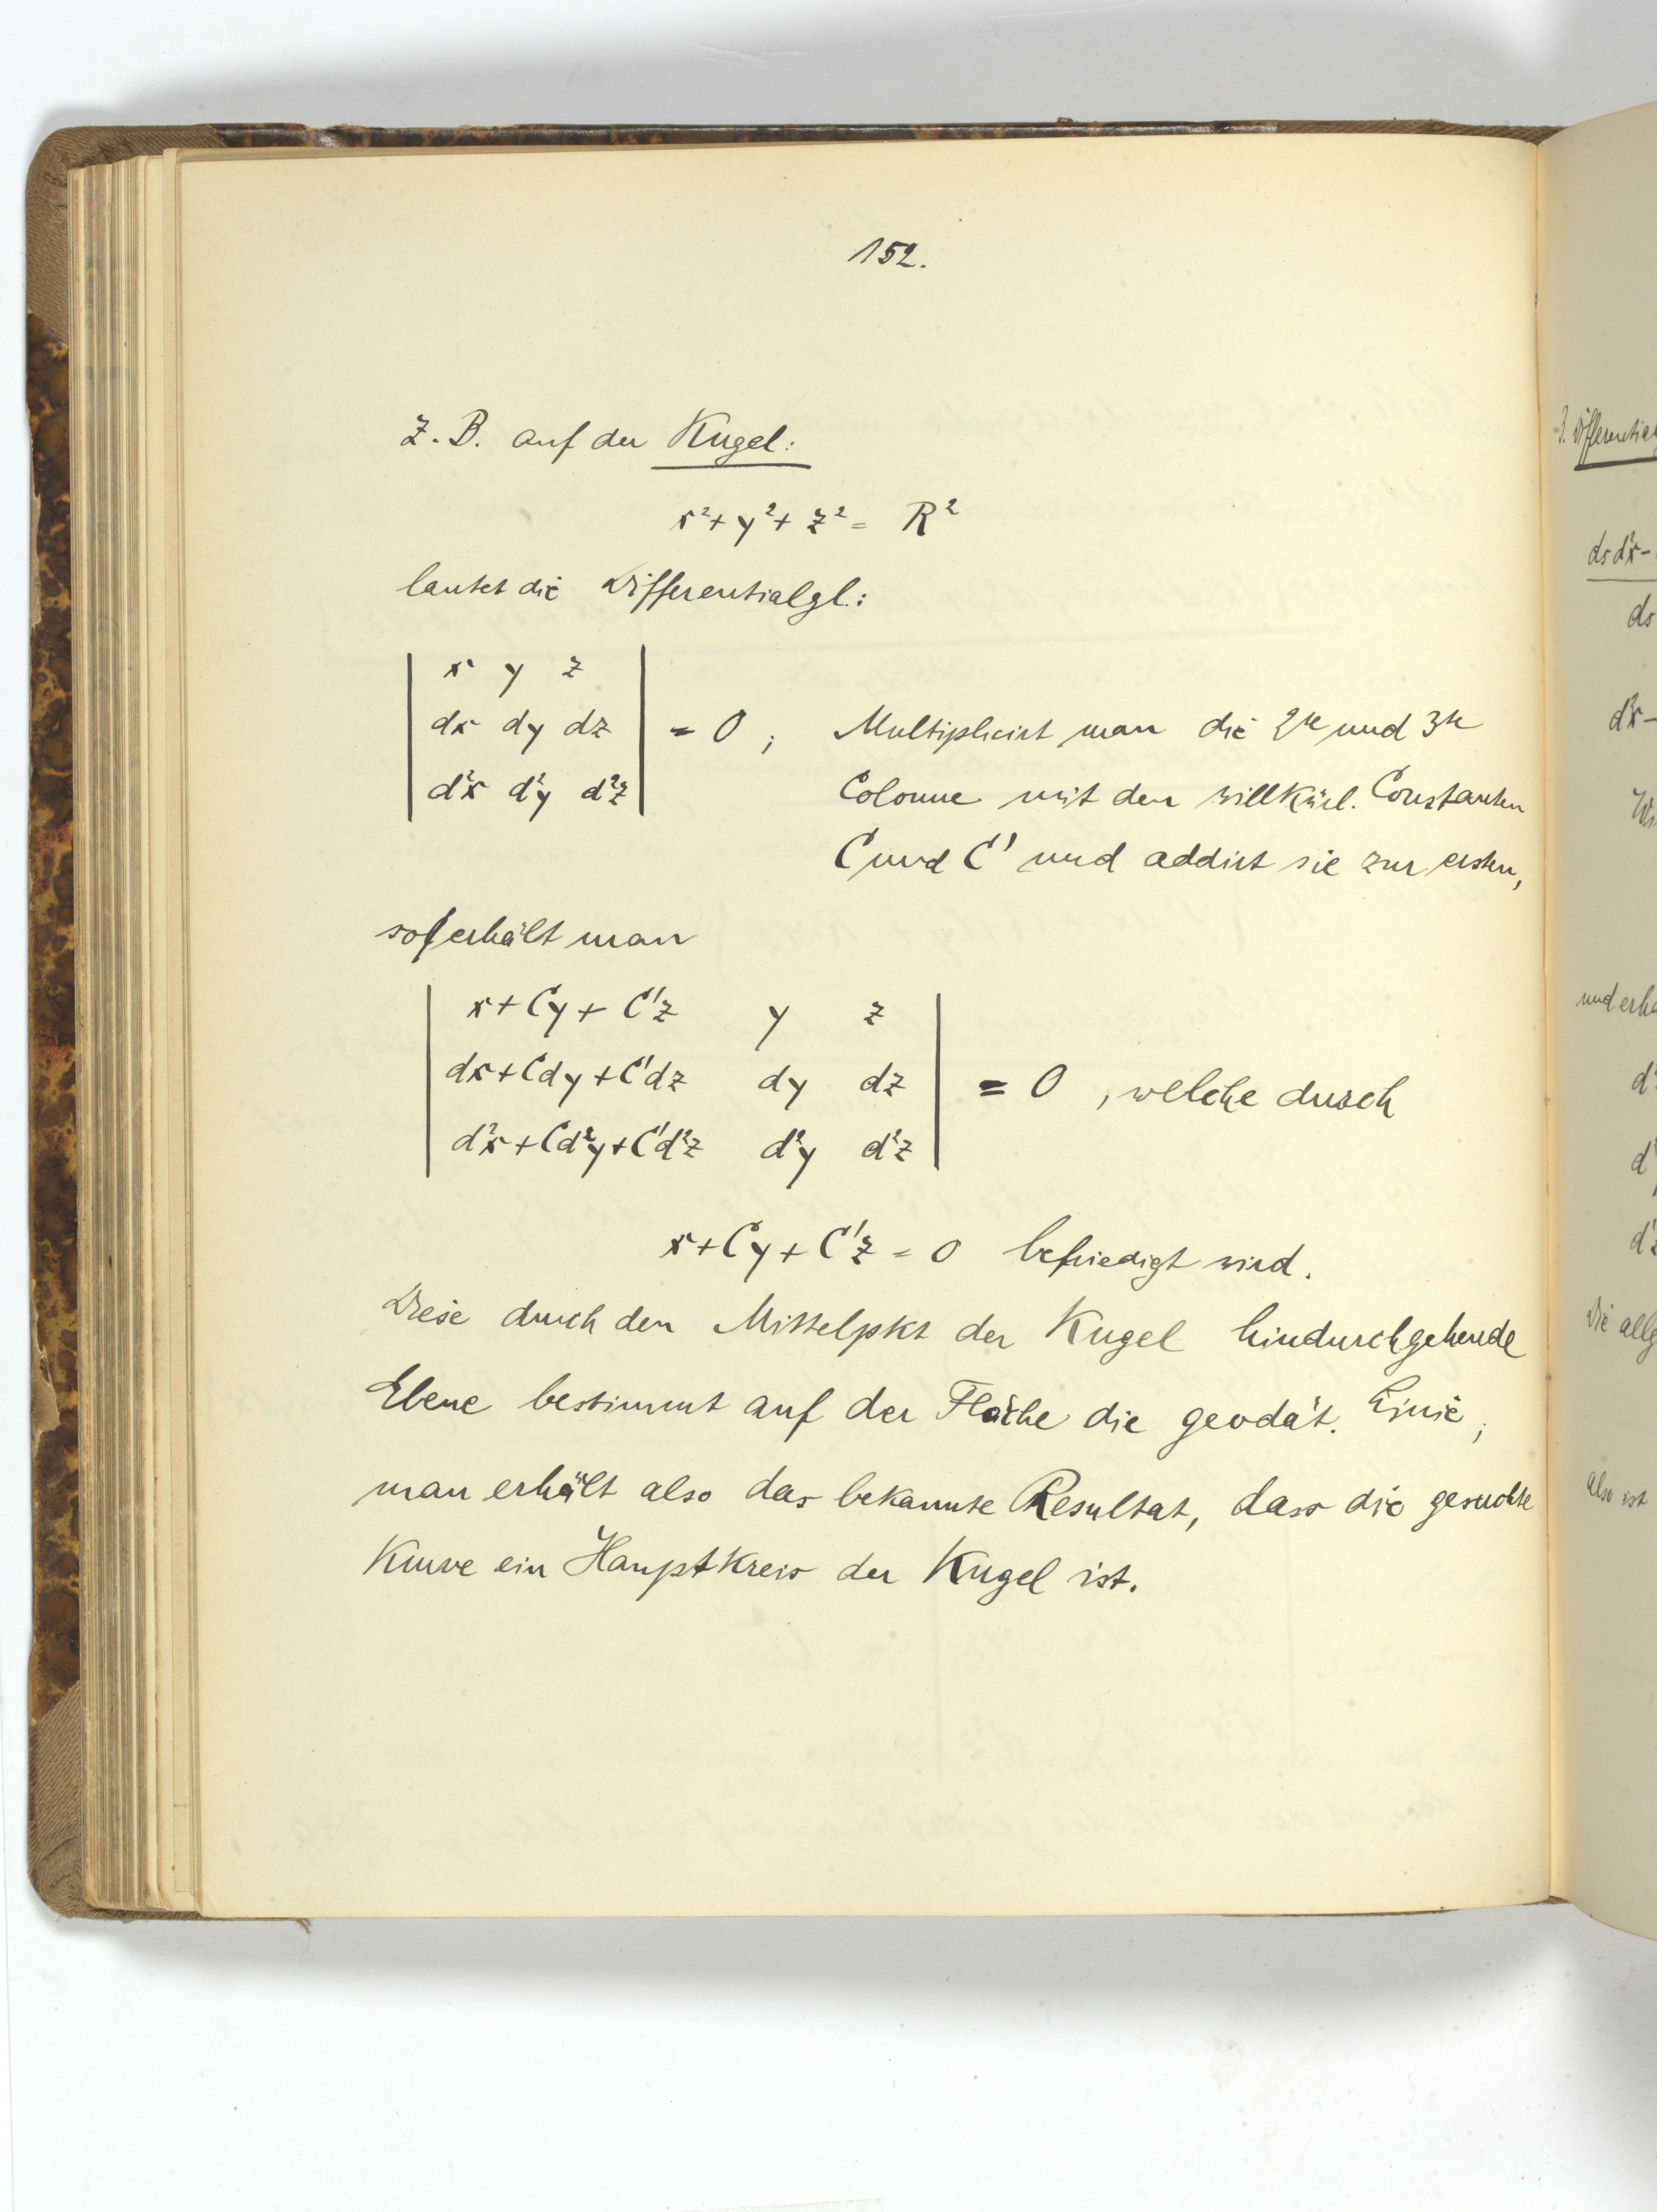 152.
Z. B. auf der Kugel:
x²+y²+z² = R²
lautet die Differentialgl.:
| x y z |
| dx dy dz | = 0 ; Multiplicirt man die 2te und 3te
| d²x d²y d²z | Colonne mit den willkürl. Constanten
C und C' und addirt sie zur ersten,
so erhält man
| x+Cy+C'z y z |
| dx+Cdy+C'dz dy dz | = 0 , welche durch
| d²x+Cd²y+C'd²z d²y d²z |
x+Cy+C'z = 0 befriedigt wird.
Diese durch den Mittelpkt der Kugel hindurchgehende
Ebene bestimmt auf der Fläche die geodät. Linie;
man erhält also das bekannte Resultat, dass die gesuchte
Kurve ein Hauptkreis der Kugel ist.
3. Differential
dsd²x-
ds
d²x-
und erha
Die allg
Also ist